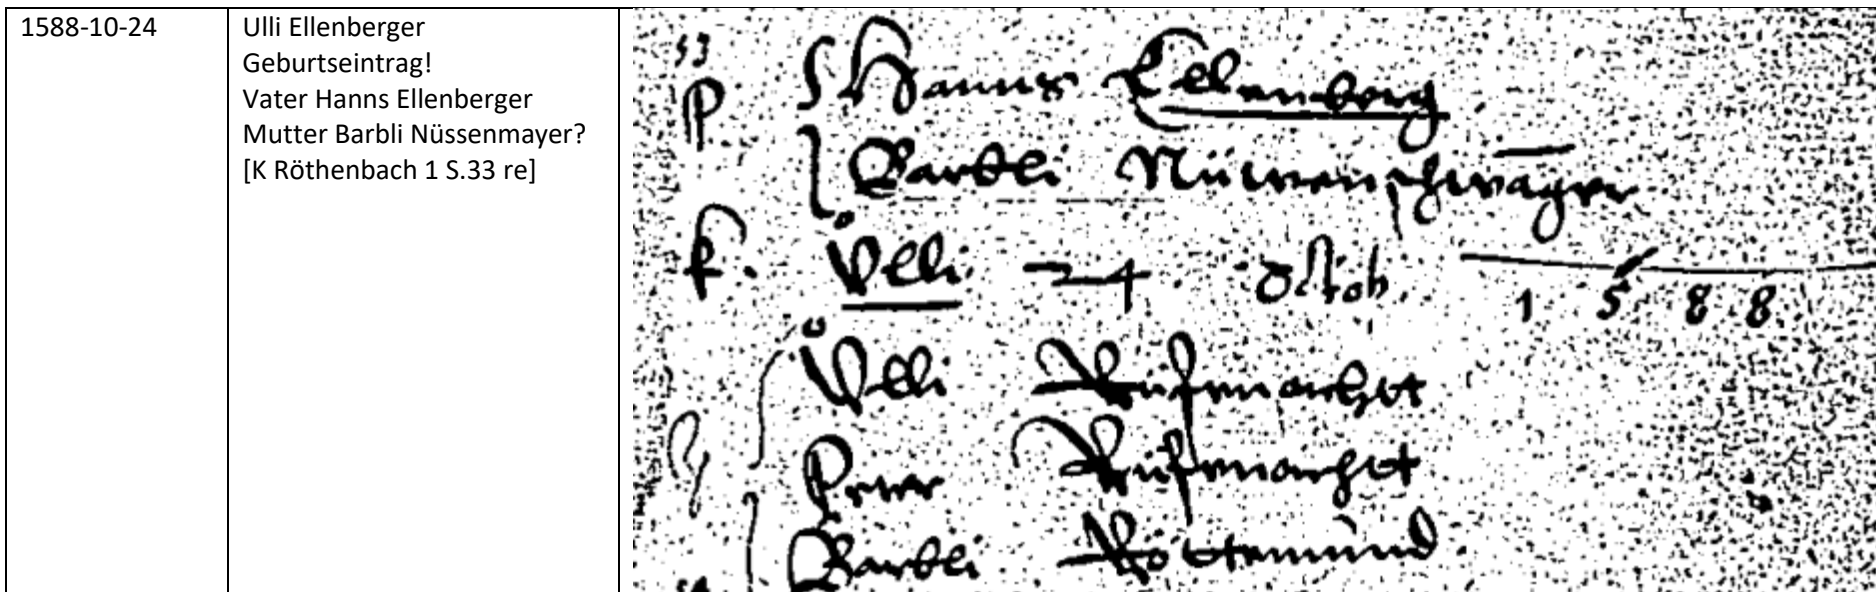 1588-10-24
Ulli Ellenberger
Geburtseintrag!
Vater Hanns Ellenberger
Mutter Barbli Nüssenmayer?
[K Röthenbach 1 S.33 re]
53
p Hanns Ellenberg
Barbli
f. Ůlli 24 Octob. 1588
Ůlli
Peter
Barbli